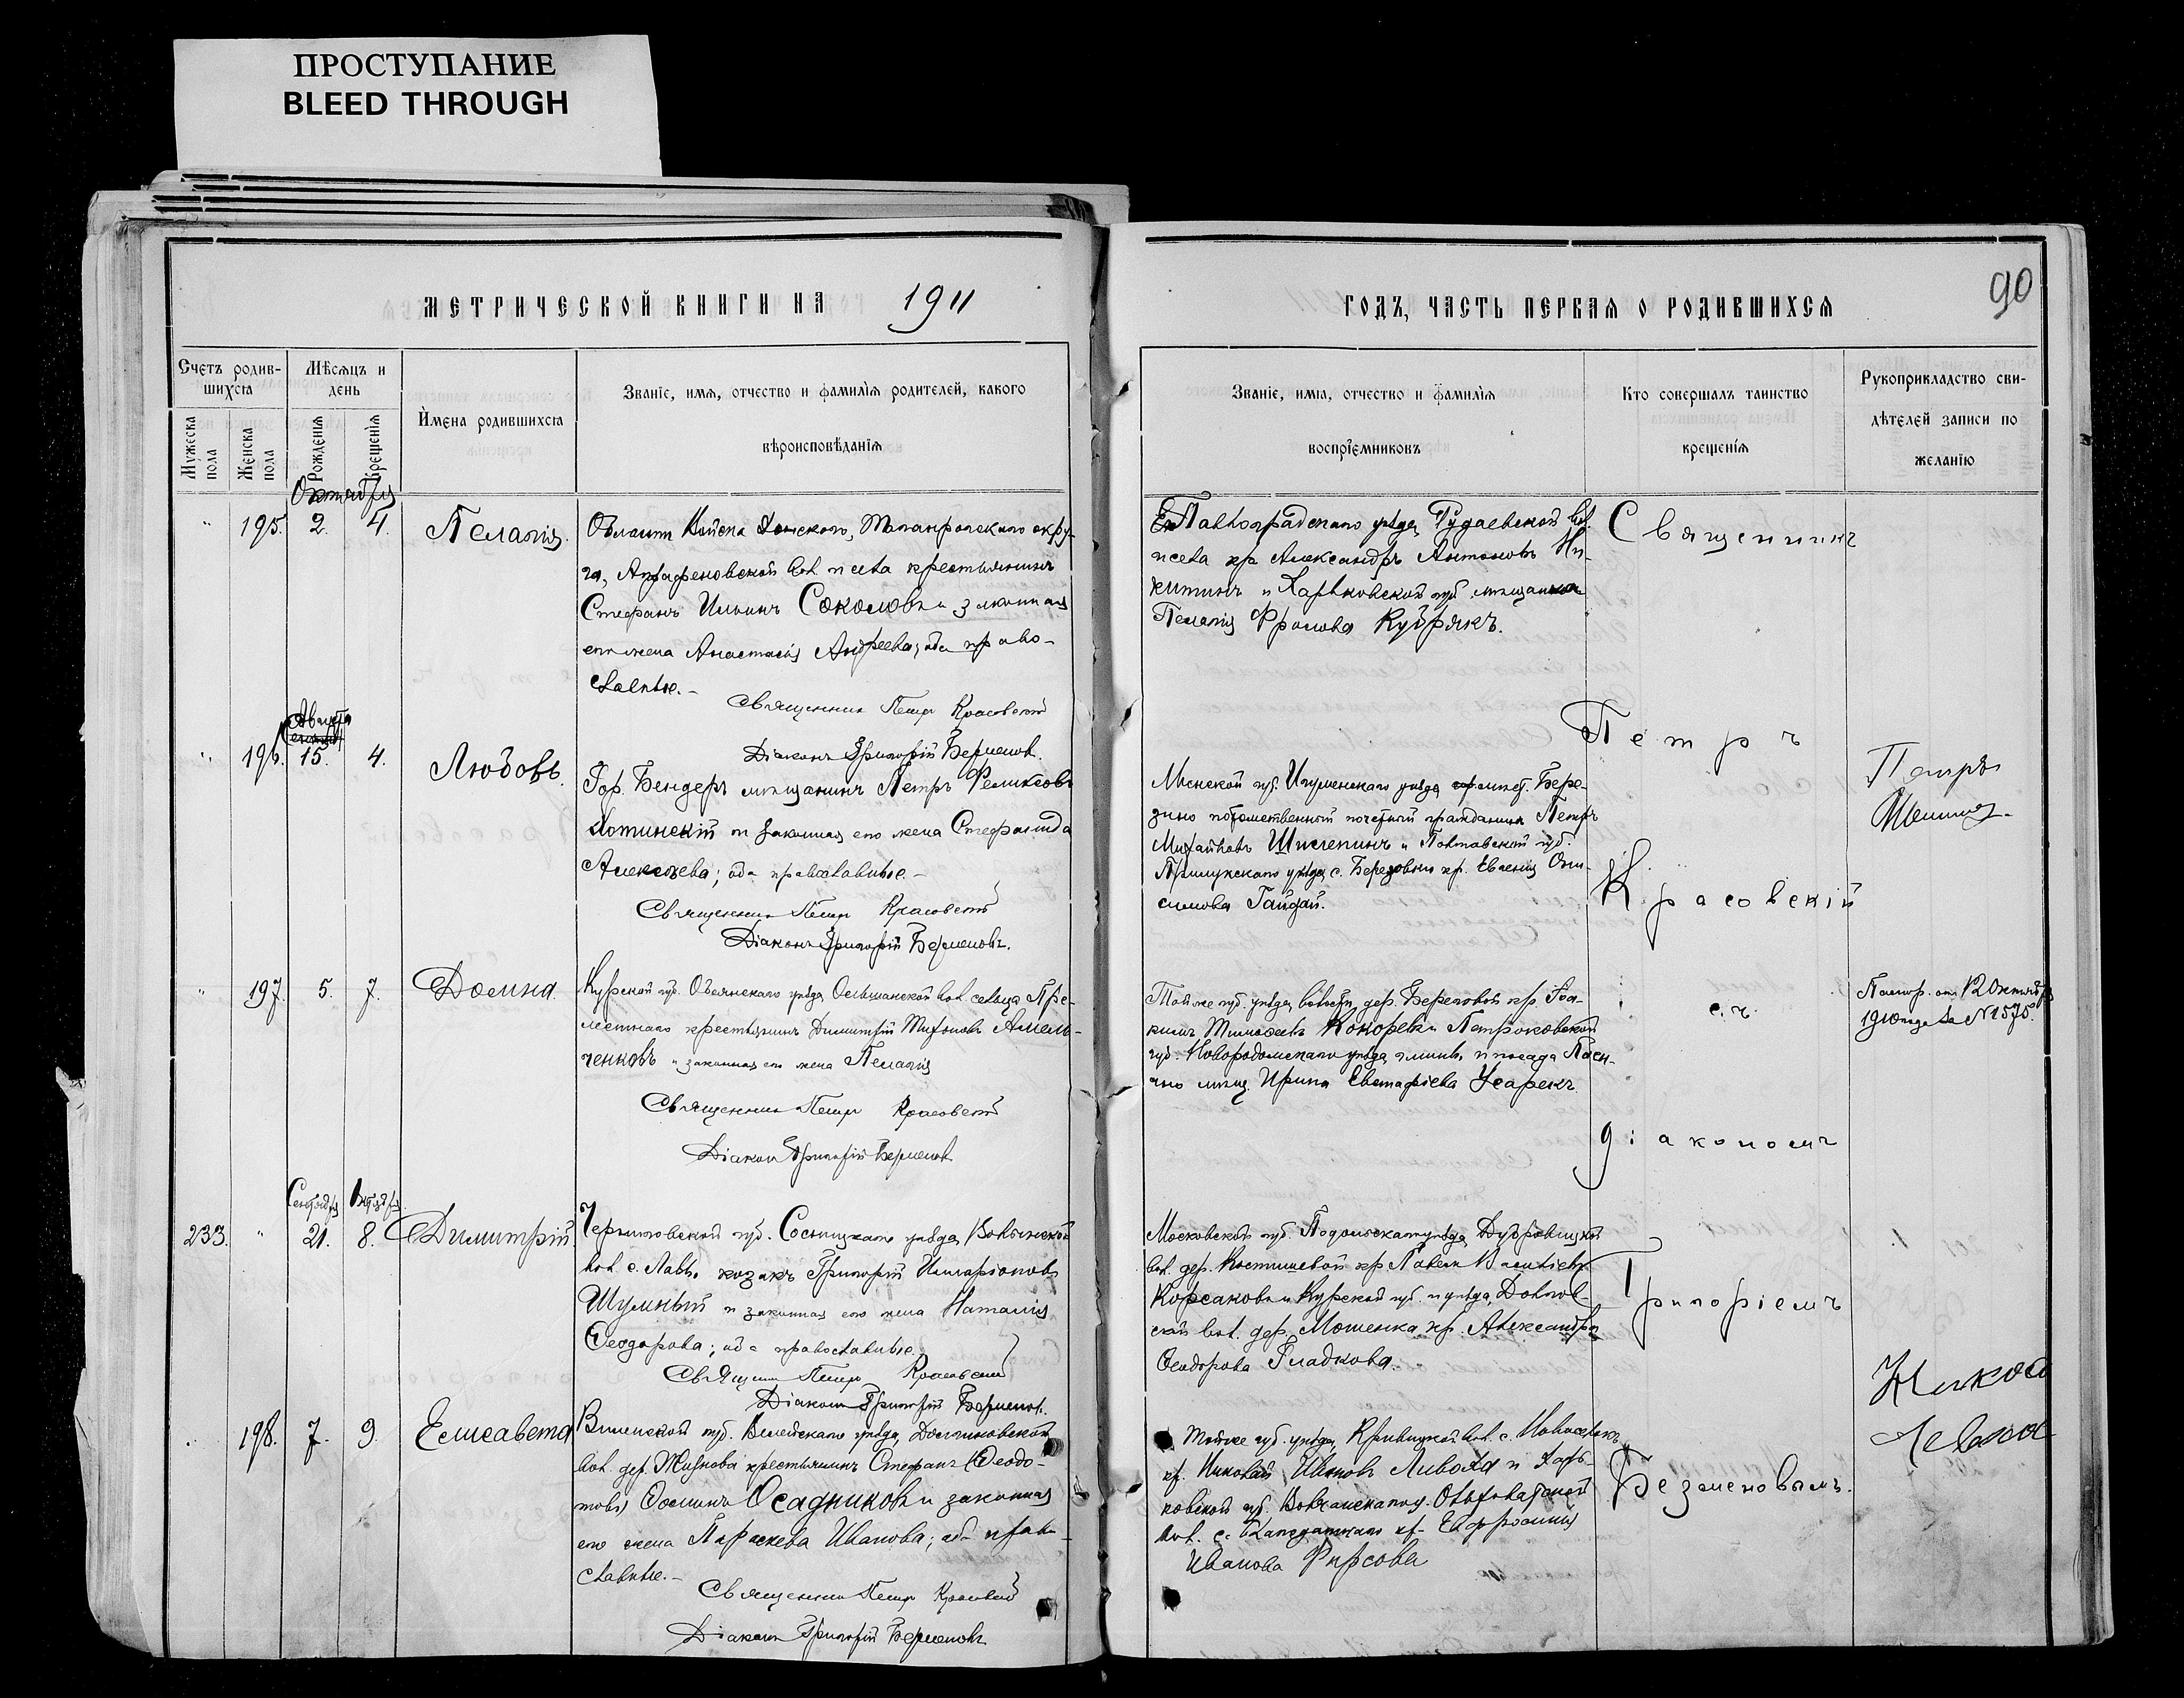 ПРОСТУПАНИЕ
BLEED THROUGH
МЕТРИЧЕСКОЙ КНИГИ НА 1911
ГОДЪ, ЧАСТЬ ПЕРВАЯ О РОДИВШИХСЯ
90
Счетъ родив-
шихся
Мужеска
пола
Женска
пола
Мѣсяцъ и
день
Рожденія
Крещенія
Имена родившихся
Званіе, имя, отчество и фамилія родителей, какого
вѣроисповѣданія
Званіе, имя, отчество и фамилія
воспріемниковъ
Кто совершалъ таинство
крещенія
Рукоприкладство сви-
дѣтелей записи по
желанію
Октября
" 195. 2. 4. Пелагія.
Области Войска Донского, Таганрогскаго окру-
га, Аграфеновской вол. и села крестьянинъ
Стефанъ Ильинъ Соколовъ и законная
его жена Анастасія Андреева; оба право-
славные.-
Священникъ Петръ Красовскій
Діаконъ Григорій Безменовъ.
Павлоградскаго уѣзда, вол.
и села кр. Александръ Антоновъ Ни-
китинъ и Харьковской губ. мѣщанка
Пелагія Фролова
Священникъ
Августа
" 196. 15. 4. Любовь.
Гор. Бендеръ мѣщанинъ Петръ Феликсовъ
и законная его жена Стефанида
Алексѣева; оба православные.-
Священникъ Петръ Красовскій
Діаконъ Григорій Безменовъ.
Минской губ. Игуменскаго уѣзда, Бере-
зино потомственный почетный гражданинъ Петръ
Михайловъ и Полтавской губ.
Прилукскаго уѣзда, с. Березовки кр. Евгенія Они-
симова Гайдай.
Петръ
Красовскій
Петръ
" 197. 5. 7. Домна
Курской губ. Обоянскаго уѣзда, Ольшанской вол. сельца Пре-
крестьянинъ Димитрій Амель-
ченковъ и законная его жена Пелагія
Священникъ Петръ Красовскій
Діаконъ Григорій Безменовъ
Той же губ. уѣзда, волости, дер. Березовой кр. Іоа-
кимъ Тимоѳеевъ Кокоревъ и Петроковской
губ. Новорадомскаго уѣзда, гмины и посада
мѣщ. Ирина Евстафіева
съ
Паспор. отъ 12 Октября
1910 года за №1575.
діакономъ
Сентября Октября
233. " 21. 8. Димитрій
Черниговской губ. Сосницкаго уѣзда, Волынской
вол. с. козакъ Григорій Иларіоновъ
Шумный и законная его жена Наталія
Ѳеодорова; оба православные.
Священникъ Петръ Красовскій
Діаконъ Григорій Безменовъ.
Московской губ. Подольскаго уѣзда, Дубровицкой
вол. дер. кр. Павелъ Васильевъ
Корсаковъ и Курской губ. и уѣзда,
ской вол. дер. Мошенка кр. Александра
Ѳеодорова Гладкова.
Григоріемъ
" 198. 7. 9. Елисавета
Виленской губ. Вилейскаго уѣзда, Долгиновской
вол. дер. Жизнова крестьянинъ Стефанъ (Ѳеодо-
товъ) Ѳоминъ Осадниковъ и законная
его жена Параскева Иванова; оба право-
славные.-
Священникъ Петръ Красовскій
Діаконъ Григорій Безменовъ
Той же губ. уѣзда, Кривицкой вол. с.
кр. Николай Ивановъ и Харь-
ковской губ. Волчанскаго у.
вол. с. кр. Евфросинія
Иванова Фирсова
Безменовымъ.